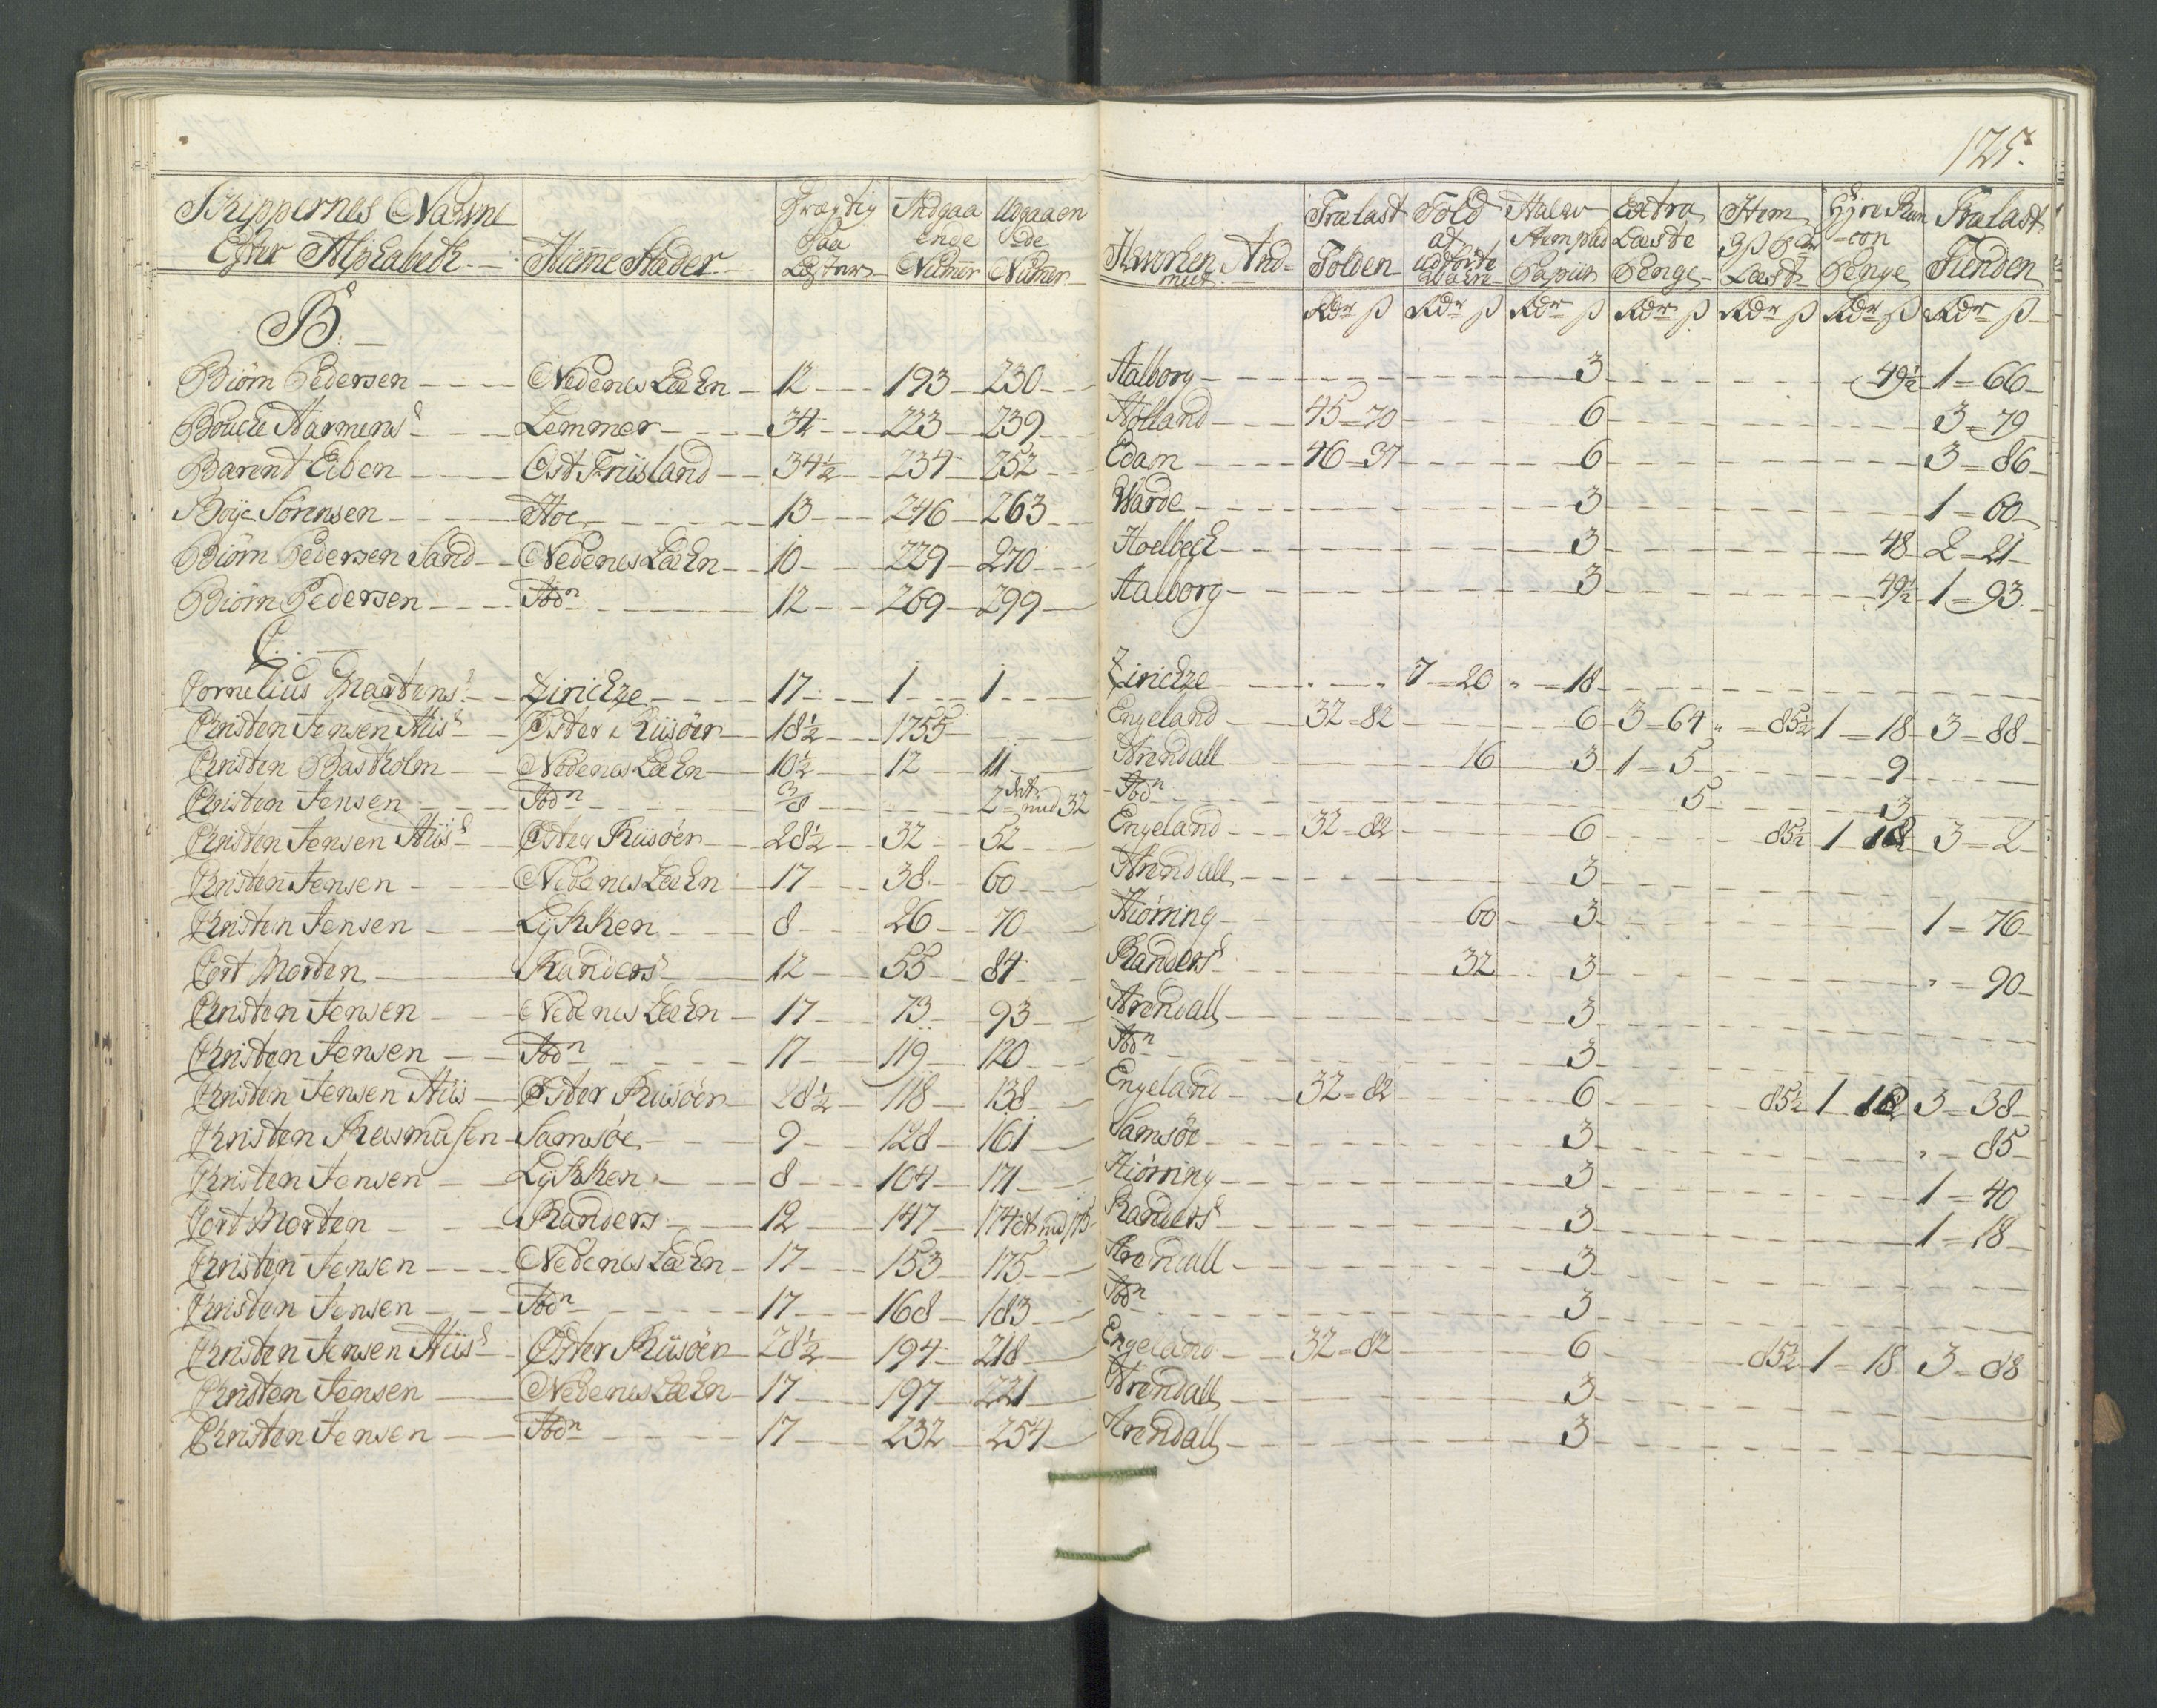 125.
Skippernes Nafne Efter Alphabeth Hiemme Stæder Drægtig Paa Læster Indgaaende Numer Udgaaende Numer Hvorhen And- Trælast Tolden Told af udførte Stempled Papiir Extra Læste Penge Item Læst Penge Trælast Tienden
Rdr ß Rdr ß Rdr ß Rdr ß Rdr ß Rdr ß Rdr ß
B.
Biørn Pedersen Nedenes Læhn 12 193 230 Aalborg 3 49½ 1 = 66
Boucke Harmens Lemmer 34 223 239 Holland 45 = 70 6 3 = 79
Barent Eiben Ost Friisland 34½ 234 252 Edam 46 = 37 6 3 = 86
Boye Sörensen Hoe 13 246 263 Warde 3 1 = 60
Biörn Pedersen Sand Nedenes Læhn 10 229 270 Hoelbech 3 48 2 = 21
Biörn Pedersen Ibdn 12 269 299 Aalborg 3 49½ 1 = 93
C.
Cornelius Martens Zirichze 17 1 1 Zirichze 7 = 20 " = 18
Christen Jensen Hiis Öster Riisöer 18½ 1755 Engeland 32 = 82 6 3 = 64 " = 85½ 1 = 18 3 = 88
Christen Bastholm Nedenes Læhn 10½ 12 11 Arendall 16 3 1 = 5 9
Christen Jensen Ibdn 3/8 2 det med 32 Ibdn 5 3
Christen Jensen Hiis Öster Riisöer 28½ 32 52 Engeland 32 = 82 6 85½ 1 18 3 = 2
Christen Jensen Nedenes Læhn 17 38 60 Arendall 3
Christen Jensen Lykken 8 26 70 Hiörring 60 3 1 = 76
Cort Morten Randers 12 55 84 Randers 32 3 " = 90
Christen Jensen Nedenes Læhn 17 73 93 Arendall 3
Christen Jensen Ibdn 17 119 120 Ibdn 3
Christen Jensen Hiis Öster Riisöer 28½ 118 138 Engeland 32 = 82 6 85½ 1 18 3 = 38
Christen Rasmusen Samsöe 9 128 161 Samsöe 3 " = 85
Christen Jensen Lykken 8 104 171 Hiörring 3 1 = 40
Cort Morten Randers 12 147 174 et med 175 Randers 3 1 = 18
Christen Jensen Nedenes Læhn 17 153 175 Arendall 3
Christen Jensen Ibdn 17 168 183 Ibdn 3
Christen Jensen Hiis Öster Riisöer 28½ 194 218 Engeland 32 = 82 6 85½ 1 = 18 3 = 88
Christen Jensen Nedenes Læhn 17 197 221 Arendall 3
Christen Jensen Ibdn 17 232 254 Arendall 3